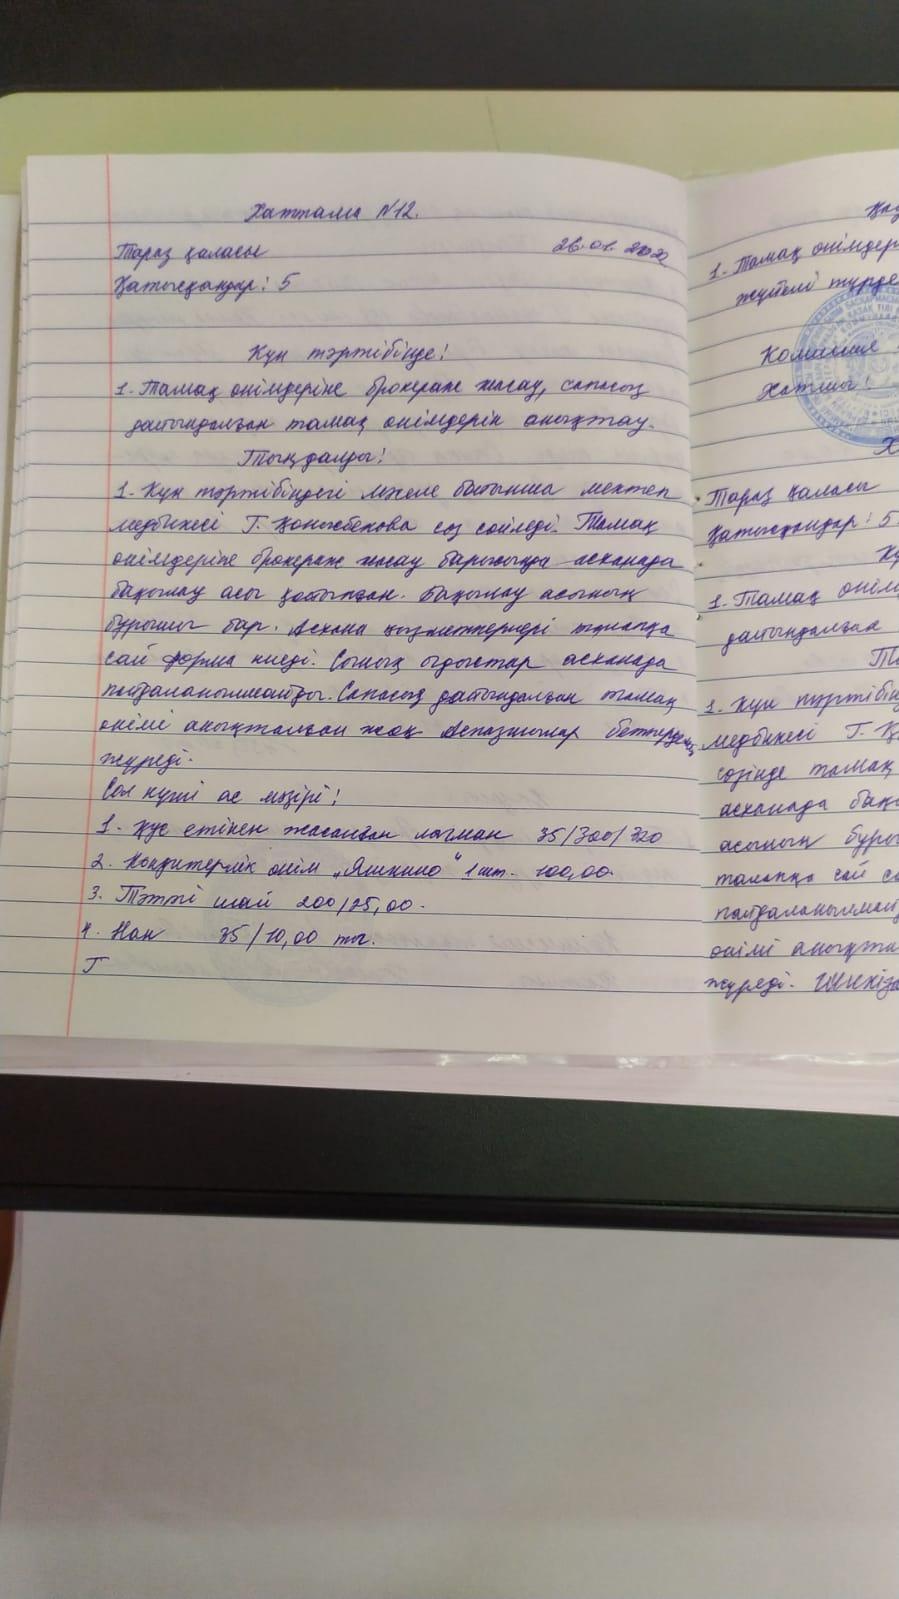 Хаттама №12.
Тараз қаласы 26.01.2022
Қатысқандар: 5
Күн тәртібінде!
1. Тамақ өнімдеріне бракераж жасау, сапасыз
дайындалған тамақ өнімдерін анықтау.
Тыңдалды!
1. Күн тәртібіндегі мәселе бойынша мектеп
медбикесі Г. сөз сөйледі. Тамақ
өнімдеріне бракераж жасау барысында асханада
бақылау асы қойылған. Бақылау асының
бұрышы бар. Асхана қызметкерлері талапқа
сай форма киеді. Сынық ыдыстар асханада
пайдаланылмайды. Сапасыз дайындалған тамақ
өнімі анықталған жоқ. Аспазшылар бетпердемен
жүреді.
Сол күнгі ас мәзірі!
1. Құс етінен жасалған лағман 35/300/320
2. Кондитерлік өнім „Яшкино" 1 шт. 100,00.
3. Тәтті шай 200/25,00.
4. Нан 35/10,00 тг.
Г
1. Тамақ өнімдер
жүйелі түрде
Комиссия
Хатшы!
Х
Тараз қаласы
Қатысқандар: 5
Кү
1. Тамақ өнім
дайындалған
Ты
1. Күн тәртібін
медбикесі Г. Қ
сөзінде тамақ
асханада бақы
асының бұры
талапқа сай
пайдаланылмай
өнімі анықта
жүреді. Шикіза